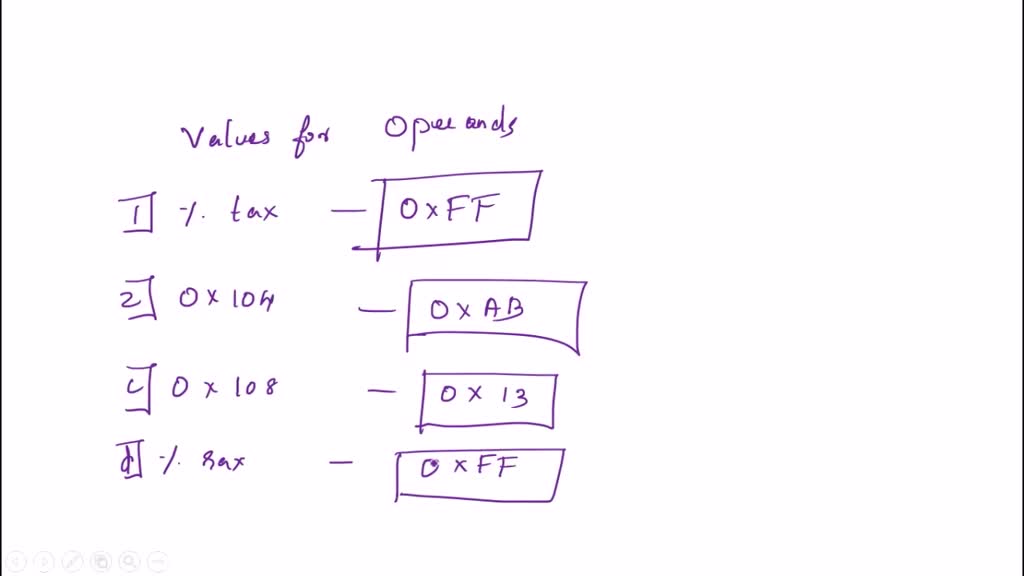 Values for Operands
1] %. tax — 0xFF
2] 0x104 — 0xAB
c] 0x108 — 0x13
d] %. rax — 0xFF